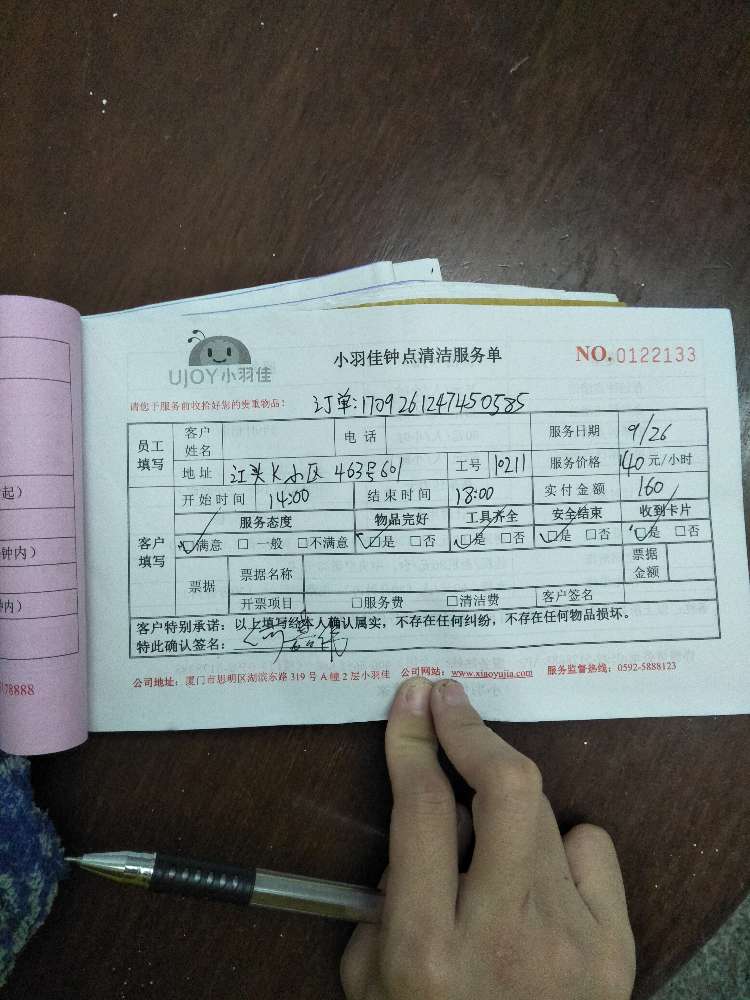 UJOY小羽佳
小羽佳钟点清洁服务单
NO.0122133
请您于服务前收拾好您的贵重物品!
订单:1709261247450585
员工填写 客户姓名 电话 服务日期 9/26
地址 江头K小区 463号601 工号 10211 服务价格 40元/小时
开始时间 14:00 结束时间 18:00 实付金额 160
客户填写 服务态度 物品完好 工具齐全 安全结束 收到卡片
☑满意 □一般 □不满意 ☑是 □否 ☑是 □否 ☑是 □否 ☑是 □否
票据 票据名称 票据金额
开票项目 □服务费 □清洁费 客户签名
客户特别承诺:以上填写经本人确认属实,不存在任何纠纷,不存在任何物品损坏。
特此确认签名:
公司地址:厦门市思明区湖滨东路319号A幢2层小羽佳 公司网站:www.xiaoyujia.com 服务监督热线:0592-5888123
起)
钟内)
内)
178888